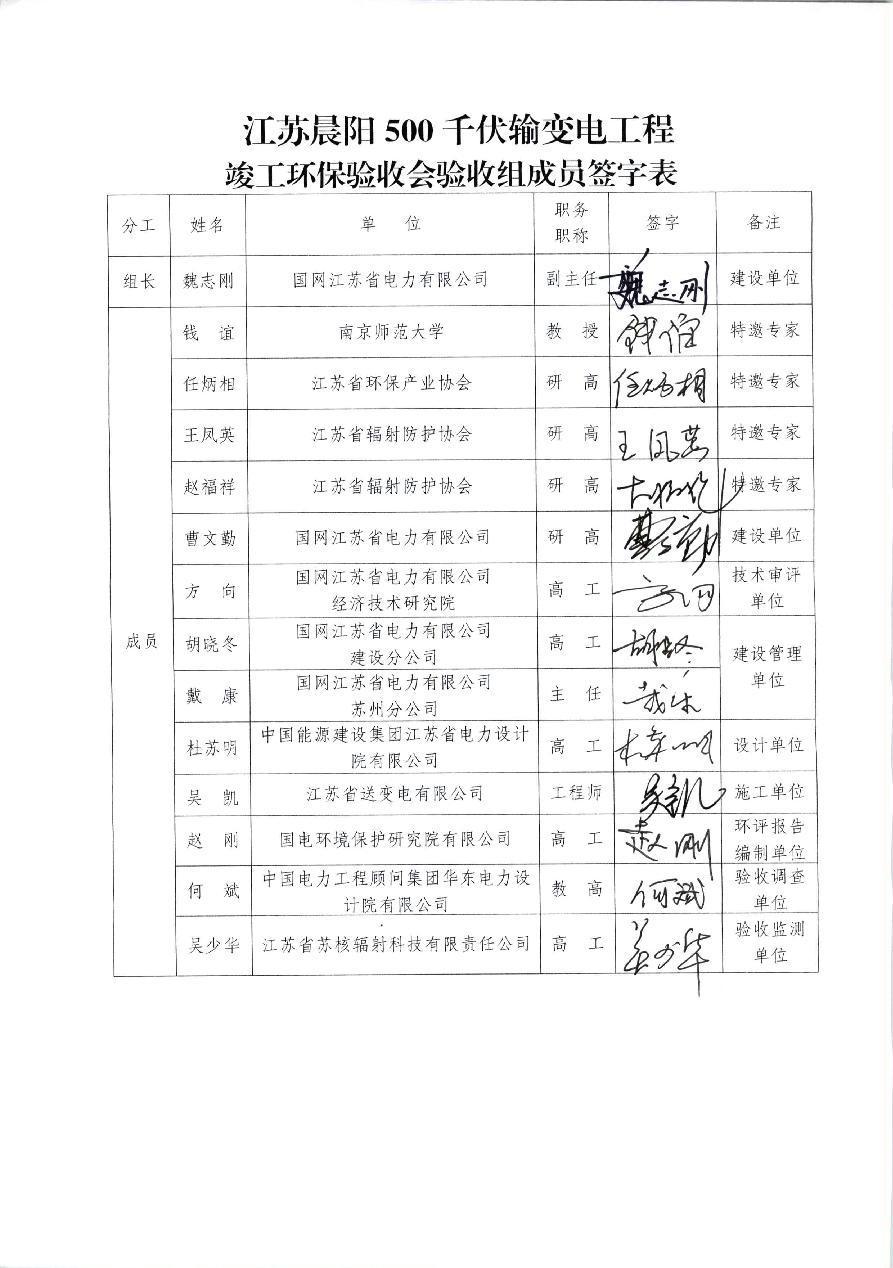 江苏晨阳 500 千伏输变电工程
竣工环保验收会验收组成员签字表
分工 姓名 单 位 职务 职称 签字 备注
组长 魏志刚 国网江苏省电力有限公司 副主任 魏志刚 建设单位
成员
钱 谊 南京师范大学 教 授 钱谊 特邀专家
任炳相 江苏省环保产业协会 研 高 任炳相 特邀专家
王凤英 江苏省辐射防护协会 研 高 王凤英 特邀专家
赵福祥 江苏省辐射防护协会 研 高 特邀专家
曹文勤 国网江苏省电力有限公司 研 高 曹文勤 建设单位
方 向 国网江苏省电力有限公司 高 工 方向 技术审评
经济技术研究院 单位
胡晓冬 国网江苏省电力有限公司 高 工 胡晓冬 建设管理
建设分公司 单位
戴 康 国网江苏省电力有限公司 主 任 戴康
苏州分公司
杜苏明 中国能源建设集团江苏省电力设计 高 工 杜苏明 设计单位
院有限公司
吴 凯 江苏省送变电有限公司 工程师 吴凯 施工单位
赵 刚 国电环境保护研究院有限公司 高 工 赵刚 环评报告
编制单位
何 斌 中国电力工程顾问集团华东电力设 教 高 何斌 验收调查
计院有限公司 单位
吴少华 江苏省苏核辐射科技有限责任公司 高 工 吴少华 验收监测
单位